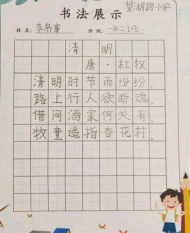 书法展示
姓名: 班级: 一年二班
清明
唐·杜牧
清明时节雨纷纷
路上行人欲断魂。
借问酒家何处有
牧童遥指杏花村。